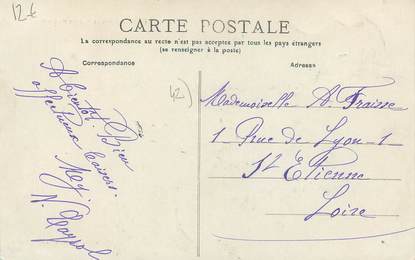 12 €
CARTE POSTALE
La correspondance au recto n'est pas acceptée par tous les pays étrangers
(se renseigner à la poste)
Correspondance
Adresse
A bientôt. Bien
affectueux baisers.
N.
42
Mademoiselle A. Fraisse
1 Rue de Lyon - 1
St Étienne
Loire